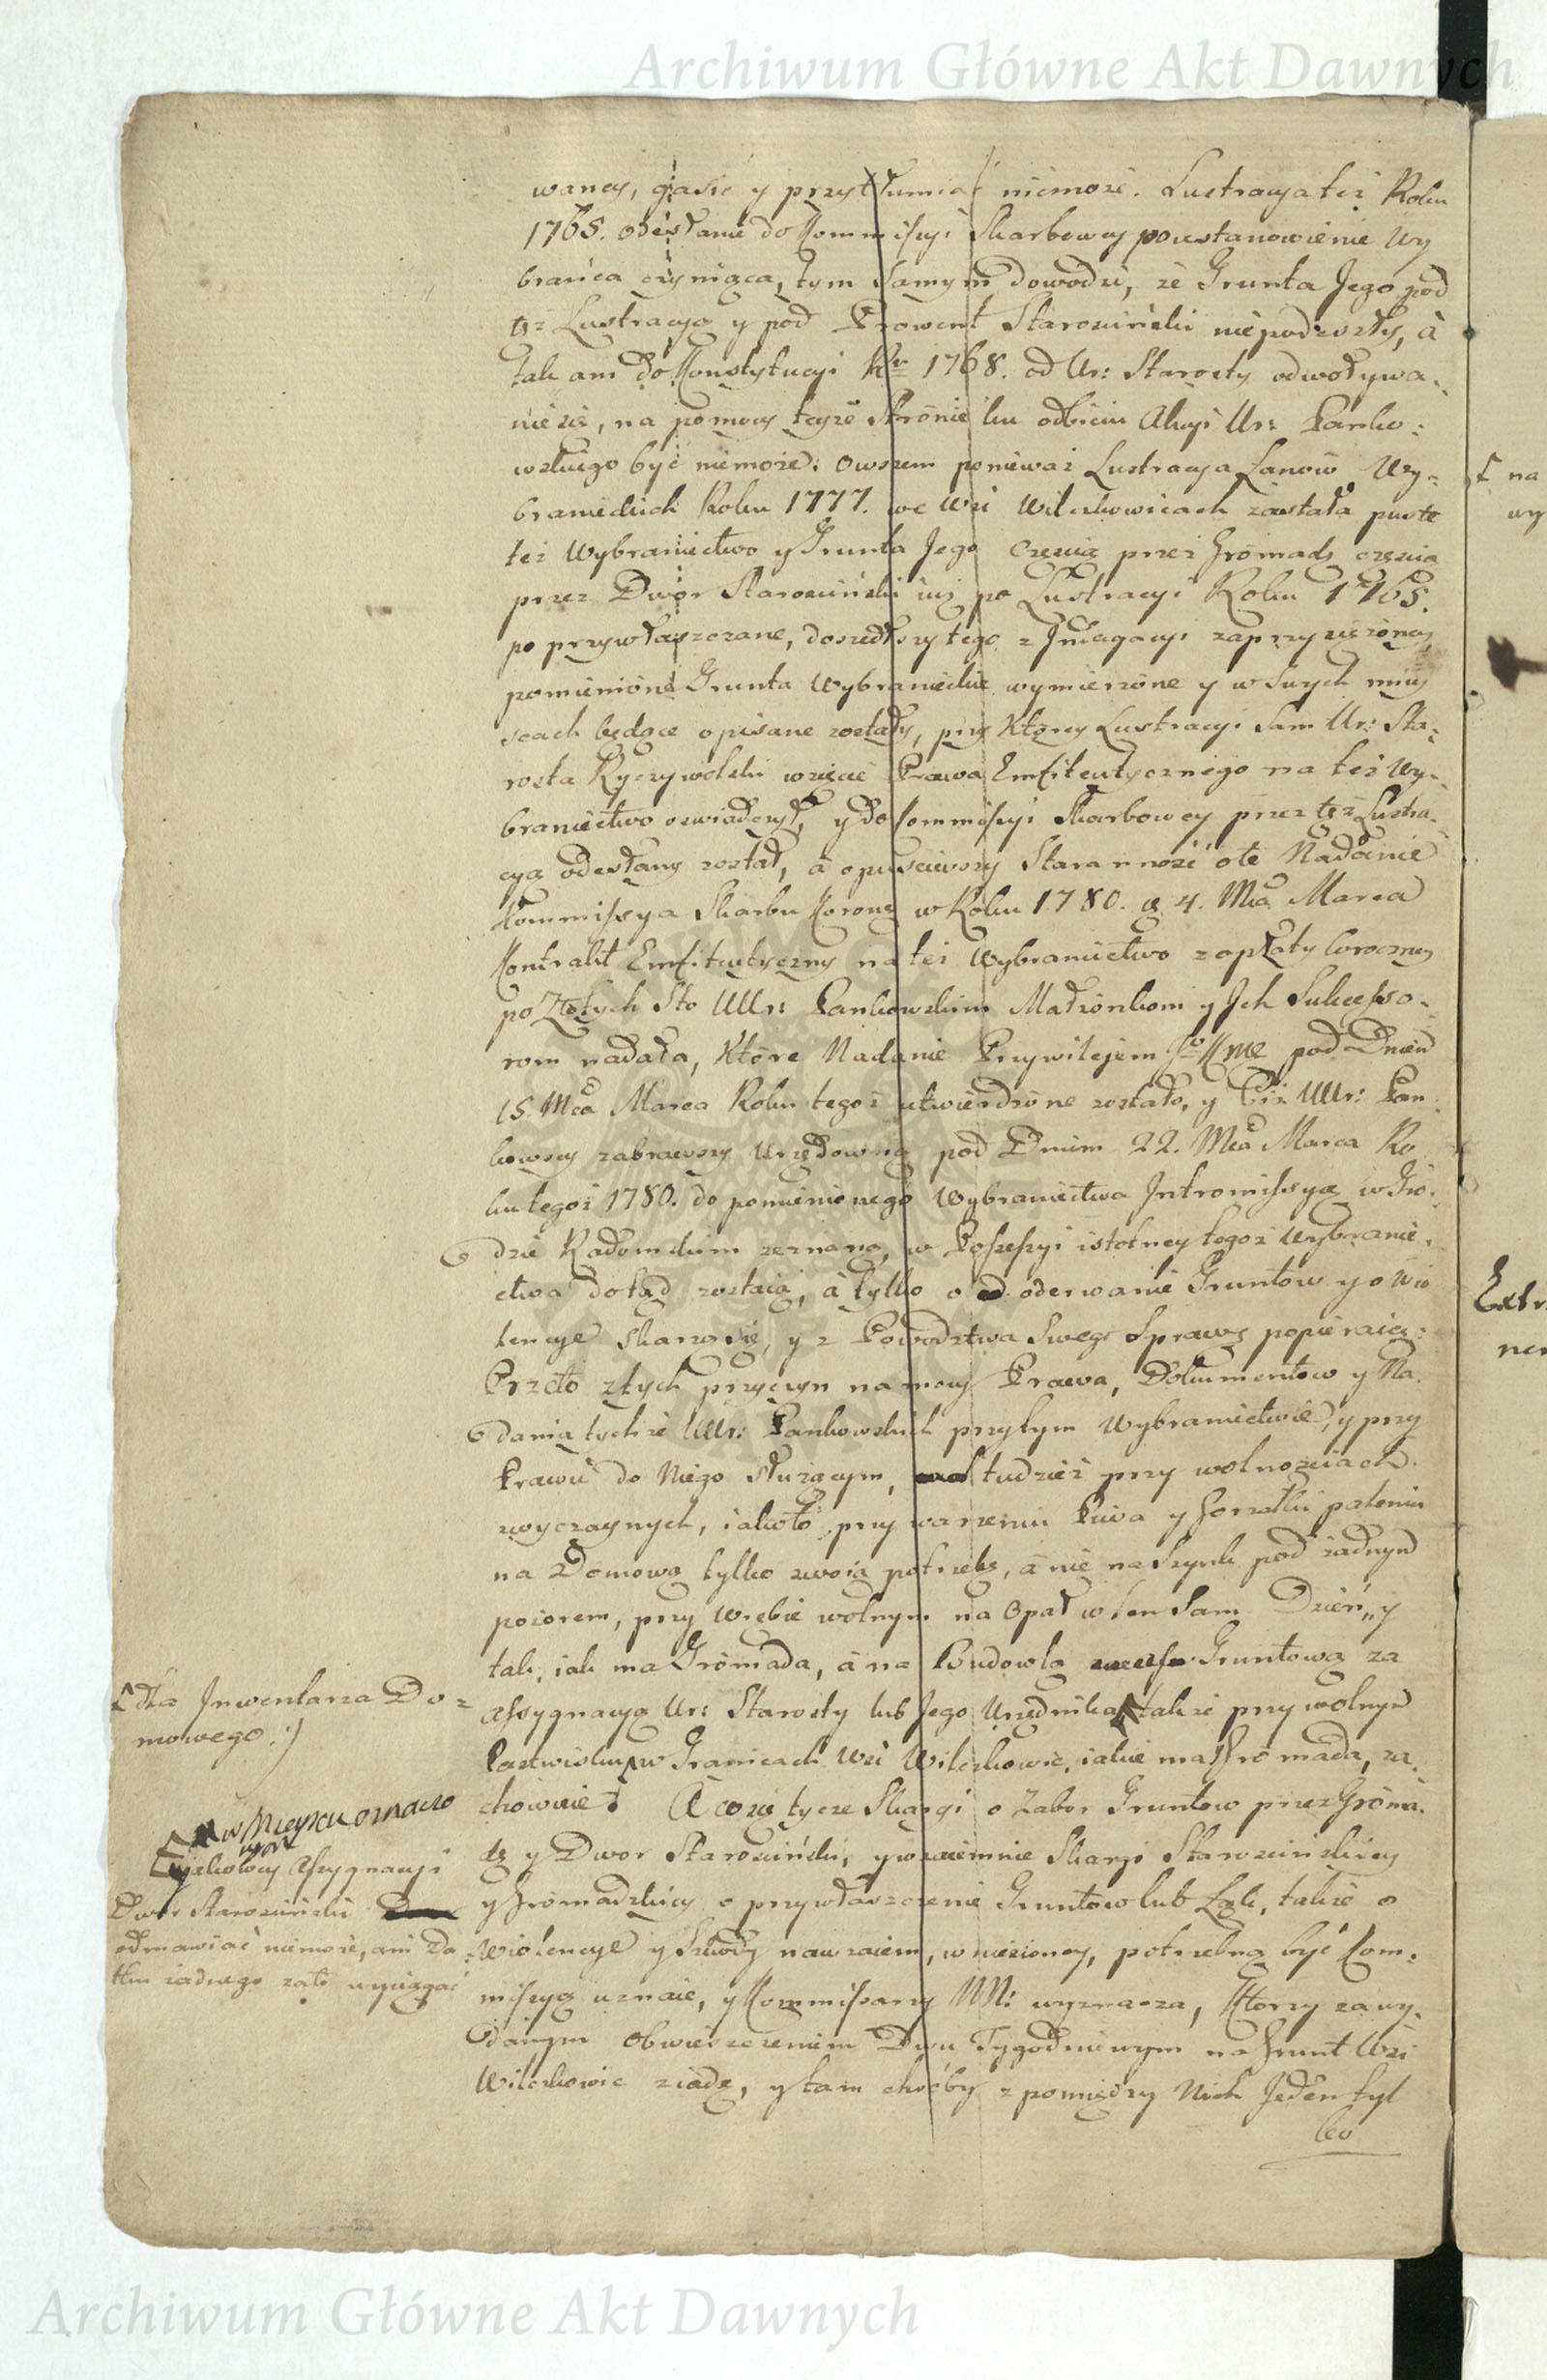 Archiwum Główne Akt Dawnych
waney, gasić y przytłumiać niemoże. Lustracya też Roku
1765. odesłanie do Kommissyi Skarbowey postanowienie Wy
brańca czyniąca, tym samym dowodzi, że Grunta Jego pod
tęż Lustracyą y pod Prowent Starościński niepodeszły, à
tak ani do Konstytucyi Rv 1768. od Ur: Starosty odwoływa=
nie się, na pomocy teyże Stronie ku odbiciu Akcyi Ur: Panko=
wskiego być niemoże: owszem ponieważ Lustracya Łanow Wy=
branieckich Roku 1777. we Wsi Wilczkowicach zastała puste
też Wybraniectwo y Grunta Jego częścią przez Gromadę częścią
przez Dwor Starościński iuż po Lustracyi Roku 1765.
po przywłaszczane, doszedłszy tego z Indagacyi zaprzysiężoney
pomienione Grunta Wybranieckie wymierzone y w swych miey
scach będące opisane zostały, przy Ktorey Lustracyi sam Ur: Sta=
rosta Ryczywolski wziąść Prawa Emfiteutycznego na też Wy=
braniectwo oswiadczył, y do Kommissyi Skarbowey przez tęż Lustra=
cyą odesłany został, à opuściwszy Staranność o te Nadanie
Kommissya Skarbu Koronę w Roku 1780. d. 4. Mca Marca
Kontrakt Emfiteutyczny na też Wybraniectwo z opłaty coroczney
po Złotych Sto UUr: Pankowskim Małżonkom y Ich Sukcesso=
rom nadała, Ktore Nadanie Przywilejem JKMc pod Dniem
15. Mca Marca Roku tegoż utwierdzone zostało, y Ciż UUr: Pan=
kowscy zabrawszy Urzędowną pod Dniem 22. Mca Marca Ro
ku tegoż 1780. do pomienionego Wybraniectwa Intromissyą w Gro=
dzie Radomskim zeznaną, w Possessyi istotney tegoż Wybranie=
ctwa dotąd zostaią, à tylko o oderwanie Gruntow y o Wio
lencye skarżą się, y z Powodztwa swego Sprawę popieraią:
Przeto z tych przyczyn na mocy Prawa, Dokumentow y Na=
dania tychże UUr: Pankowskich przy tym Wybraniectwie, y przy
Prawie do Niego służącym, tudzież przy wolnościach
zwyczaynych, iako to przy warzeniu Piwa y Gorzałki paleniu
na Domową tylko swoią potrzebę, à nie na Szynk pod żadnym
pozorem, przy Wrębie wolnym na Opał w ten sam Dzień, y
tak, iak ma Gromada, à na Budowlą Gruntową za
Assygnacyą Ur: Starosty lub Jego Urzędnika także przy wolnym
Pastwisku w Granicach Wsi Wilczkowic, iakie ma Gromada, za=
chowuie. A co się tycze Skargi o Zabor Gruntow przez Groma=
dę y Dwor Starościński, y wzaiemnie Skargi Starościńskiey
y Gromadzkiey o przywłaszczenie Gruntow lub Łąk, także o
Wiolencye y Szkody nawzaiem, wniesioney, potrzebną być Kom=
missyą uznaie, y Kommissarzy NN: wyznacza, Ktorzy za wy=
danym Obwieszczeniem Dwu Tygodniowym na Grunt Wsi
Wilczkowic ziadą, y tam choćby z pomiędzy Nich Jeden tyl
ko
dla Inwentarza Do=
mowego:)
w Mieyscu oznaczo
nym
iakowey Assygnacyi
Dwor Starościński
odmawiać niemoże, ani Da
tku żadnego zato wyciągać
na
wy
Extr
ner
Archiwum Główne Akt Dawnych